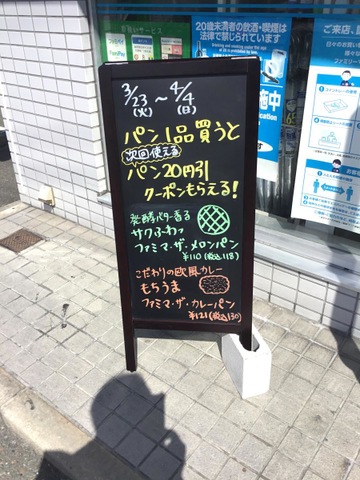 20歳未満者の飲酒・喫煙は
法律で禁じられています
3/23(火)～4/4(日)
パン1品買うと
次回使える
パン20円引
クーポンもらえる!
発酵バター香る
サクふわっ
ファミマ・ザ・メロンパン
¥110(税込118)
こだわりの欧風カレー
もちうま
ファミマ・ザ・カレーパン
¥121(税込130)